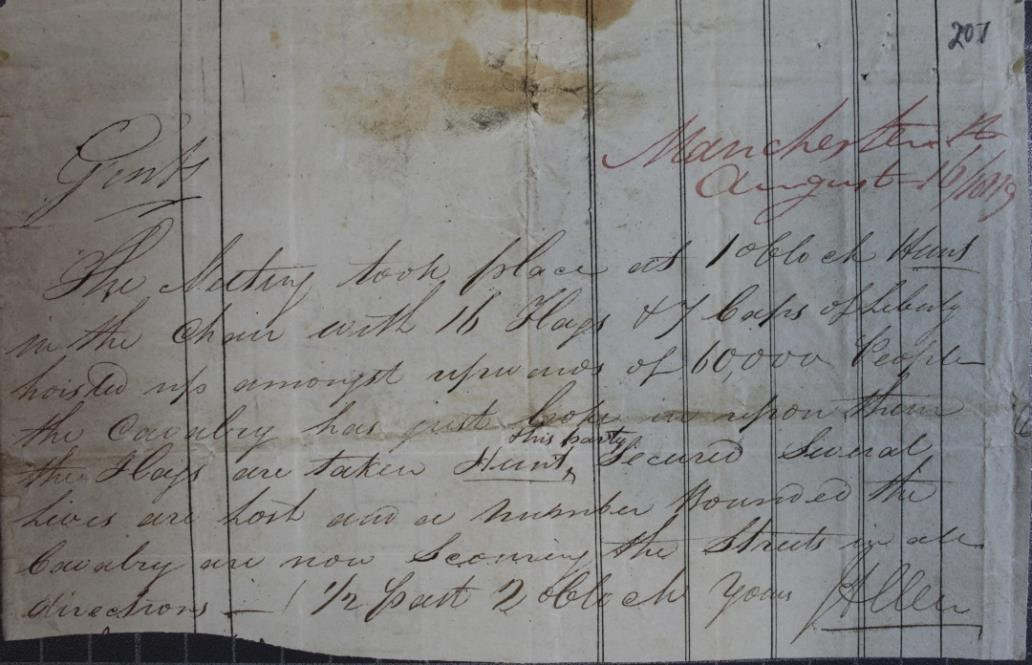 207
Manchester
August 16/1819
Gents
The Meeting took place at 1 oClock Hunt
in the Chair with 16 Flags & 7 Caps of Liberty
hoisted up amongst upwards of 60,000 People
the Cavalry has just in upon them
the Flags are taken Hunt, this party Secured Several
Lives are Lost and a number Wounded the
Cavalry are now Scouring the Streets in all
directions — 1/2 past 2 oClock Yours Allen